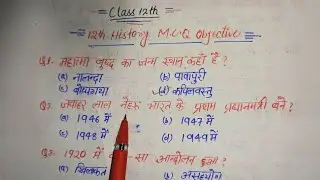 Class 12th
12th History M.C.Q Objective
Q1. महात्मा बुद्ध का जन्म स्थान कहाँ है ?
(a) नालन्दा (b) पावापुरी
(c) बोधगया (d) कपिलवस्तु
Q2. जवाहर लाल नेहरू भारत के प्रथम प्रधानमंत्री बने ?
(a) 1946 में (b) 1947 में
(c) 1948 में (d) 1949 में
Q3. 1920 में सा आन्दोलन हुआ ?
(a) खिलाफत (b) असहयोग